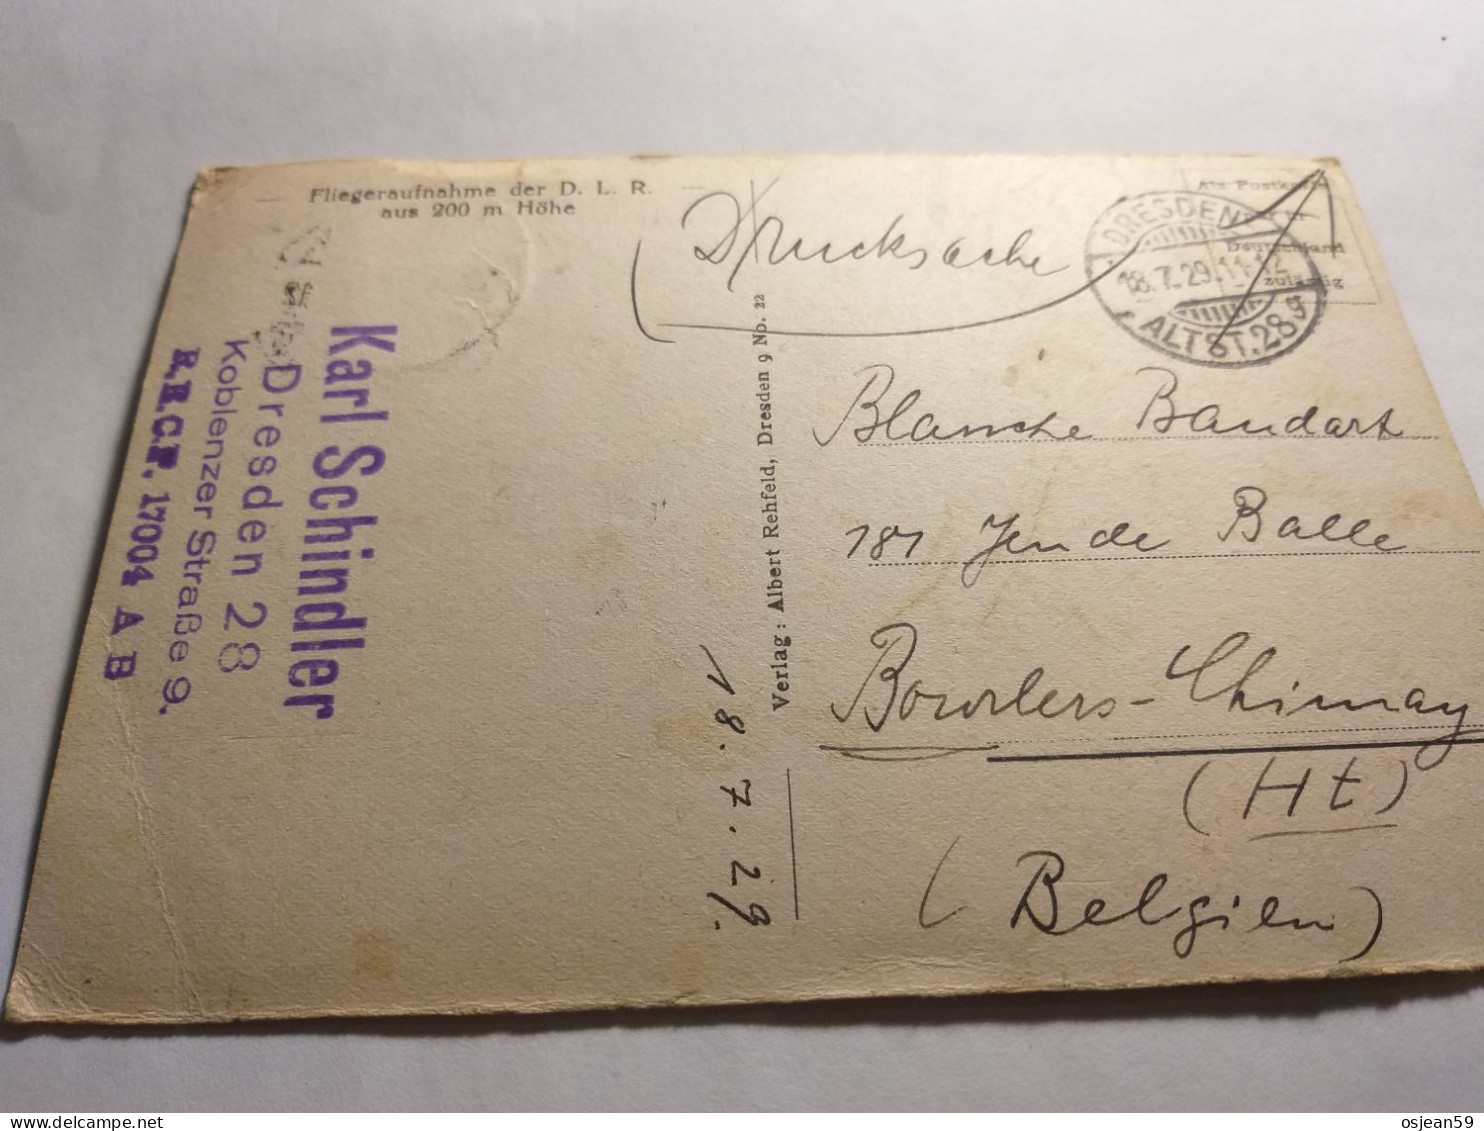 Fliegeraufnahme der D. L. R.
aus 200 m Höhe
Drucksache
Als Postkarte
Deutschland
zulässig
DRESDEN
18.7.29.11-12
ALTST.28 g
Karl Schindler
Dresden 28
Koblenzer Straße 9.
17004 A B
Verlag: Albert Rehfeld, Dresden 9 No. 22
18.7.29.
Blanche Baudart
181 de Balle
Bourlers-Chimay
(Ht)
(Belgien)
delcampe.net
osjean59